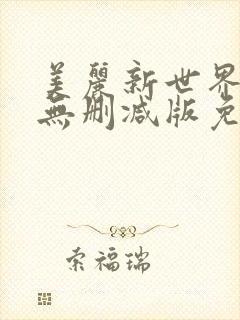 美麗新世界
無删减版免
索福瑞